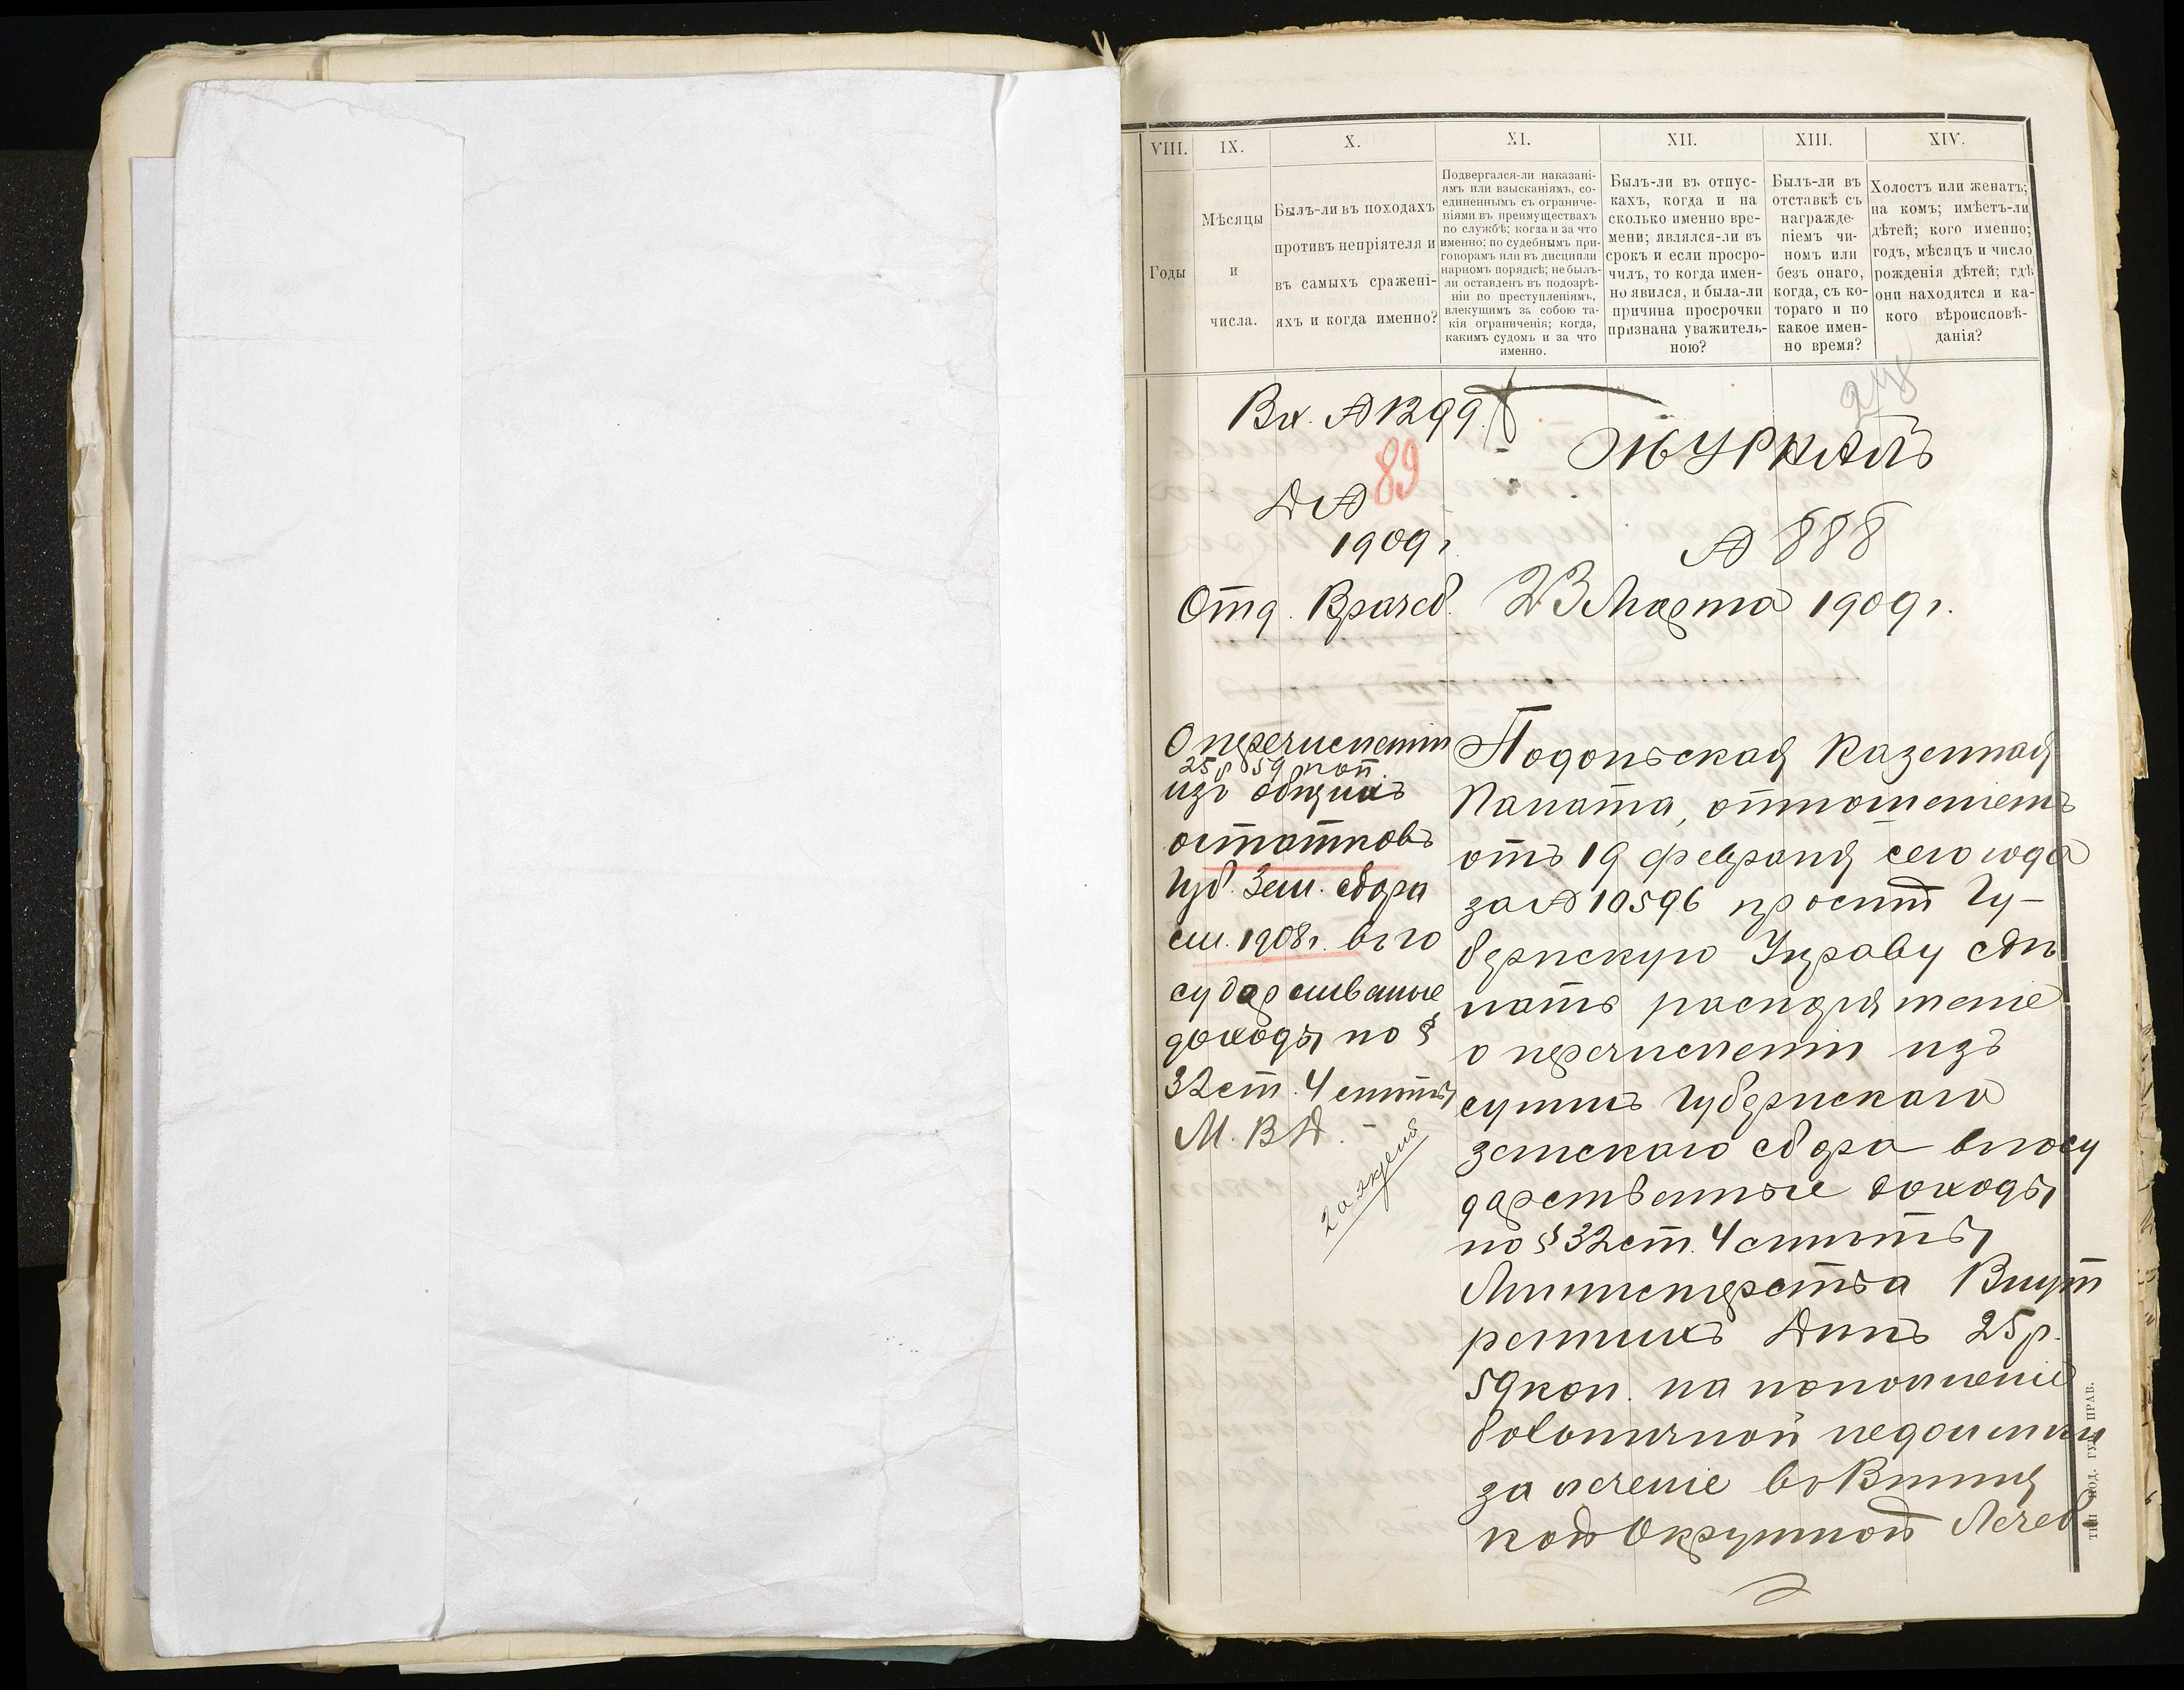 VIII.
Годы
IX.
Мѣсяцы
и
числа.
X.
Былъ-ли въ походахъ
противъ непріятеля и
въ самыхъ сражені-
яхъ и когда именно?
XI.
Подвергался-ли наказані-
ямъ или взысканіямъ, со-
единеннымъ съ ограниче-
ніями въ преимуществахъ
по службѣ; когда и за что
именно; по судебнымъ при-
говорамъ или въ дисципли
нарномъ порядкѣ; не былъ-
ли оставленъ въ подозрѣ-
ніи по преступленіямъ,
влекущимъ за собою та-
кія ограниченія; когда,
какимъ судомъ и за что
именно.
XII.
Былъ-ли въ отпус-
кахъ, когда и на
сколько именно вре-
мени; являлся-ли въ
срокъ и если просро-
чилъ, то когда имен-
но явился, и была-ли
причина просрочки
признана уважитель-
ною?
XIII.
Былъ-ли въ
отставкѣ съ
награжде-
ніемъ чи-
номъ или
безъ онаго,
когда, съ ко-
тораго и по
какое имен-
но время?
XIV.
Холостъ или женатъ;
на комъ; имѣетъ-ли
дѣтей; кого именно;
годъ, мѣсяцъ и число
рожденія дѣтей; гдѣ
они находятся и ка-
кого вѣроисповѣ-
данія?
Вх. № 1299
Д № 89
1909 г.
Отд. Врачеб.
О перечисленіи
25 р 59 коп.
изъ общихъ
остатковъ
Губ. Зем. сбора
см. 1908 г. въ го
сударственные
доходы по §
32 ст. 4 смѣты
М. В. Д. -
248
ЖУРНАЛЪ
№ 888
23 Марта 1909 г.
Подольская Казенная
Палата, отношеніемъ
отъ 19 февраля сего года
за № 10596 проситъ Гу-
бернскую Управу сдѣ
лать распоряженіе
о перечисленіи изъ
суммъ Губернскаго
земскаго сбора въ госу
дарственные доходы
по § 32 ст. 4 смѣты
Министерства Внут
реннихъ Дѣлъ 25 р.
59 коп. на пополненіе
больничной недоимки
за леченіе въ Винниц
кой Окружной Лечеб
ТИП. ПОД. ГУБ. ПРАВ.